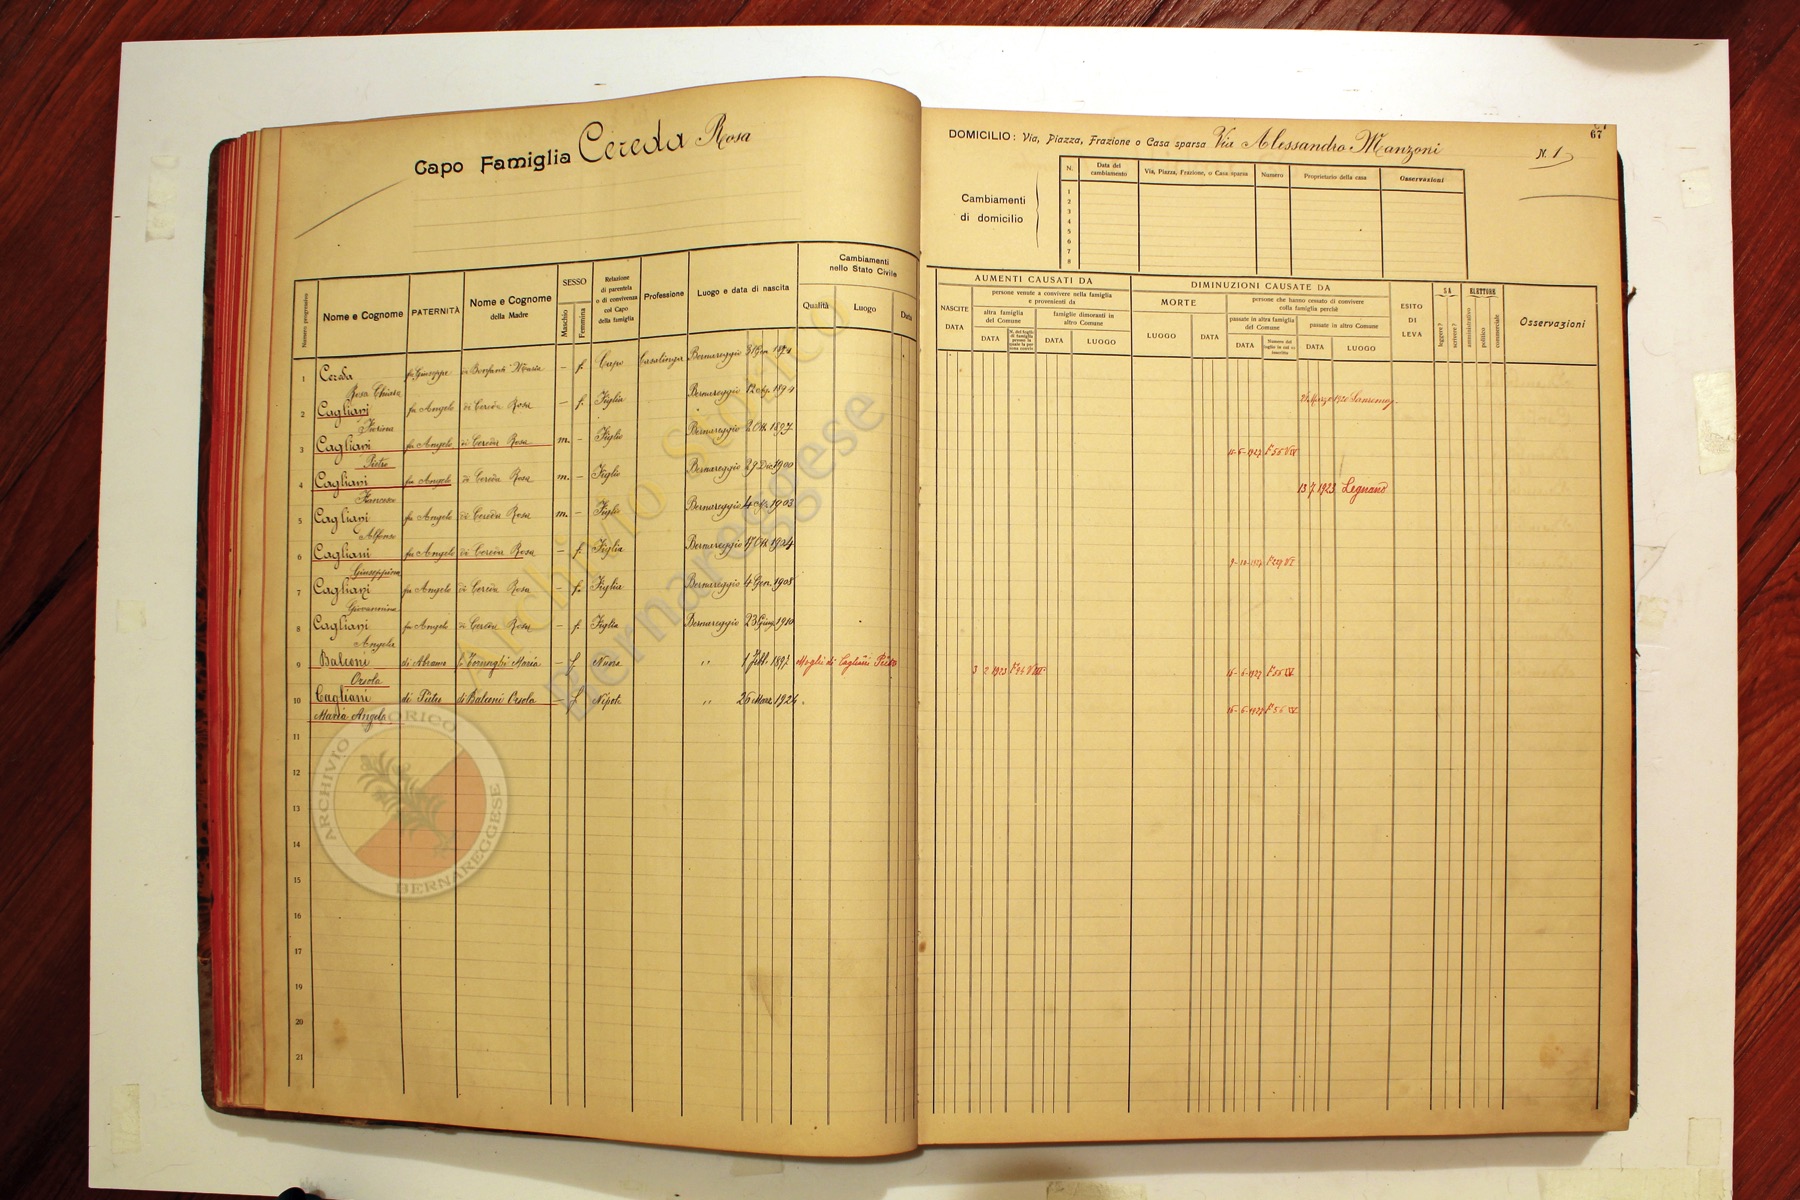 Capo Famiglia Cereda Rosa
Numero progressivo
Nome e Cognome
PATERNITÀ
Nome e Cognome
della Madre
SESSO
Maschio
Femmina
Relazione
di parentela
o di convivenza
col Capo
della famiglia
Professione
Luogo e data di nascita
Cambiamenti
nello Stato Civile
Qualità
Luogo
Data
1 Cereda fu Giuseppe di Bonfanti Maria – f. Capo Casalinga Bernareggio 31 Gen.
Rosa Chiara
2 Cagliani fu Angelo di Cereda Rosa – f. Figlia Bernareggio 12
Fiorina
3 Cagliani fu Angelo di Cereda Rosa m. – Figlio Bernareggio 2 Ott. 1897
Pietro
4 Cagliani fu Angelo di Cereda Rosa m. – Figlio Bernareggio 29 Dic. 1900
Francesco
5 Cagliani fu Angelo di Cereda Rosa m. – Figlio Bernareggio 4 1903
Alfonso
6 Cagliani fu Angelo di Cereda Rosa – f. Figlia Bernareggio 17 Ott. 1904
Giuseppina
7 Cagliani fu Angelo di Cereda Rosa – f. Figlia Bernareggio 4 Gen. 1908
Giovannina
8 Cagliani fu Angelo di Cereda Rosa – f. Figlia Bernareggio 23 Giug. 1910
Angela
9 Balconi di Abramo Maria – f Nuora " 1 Febb. 1897 Moglie di Cagliani Pietro
Orsola
10 Cagliani di Pietro di Balconi Orsola – f Nipote " 26 Mar. 1924
Maria Angela
11
12
13
14
15
16
17
18
19
20
21
DOMICILIO: Via, Piazza, Frazione o Casa sparsa Via Alessandro Manzoni N. 1
67
Cambiamenti
di domicilio
N.
Data del
cambiamento
Via, Piazza, Frazione, o Casa sparsa
Numero
Proprietario della casa
Osservazioni
1
2
3
4
5
6
7
8
AUMENTI CAUSATI DA
NASCITE
DATA
persone venute a convivere nella famiglia
e provenienti da
altra famiglia
del Comune
DATA
famiglie dimoranti in
altro Comune
DATA
LUOGO
DIMINUZIONI CAUSATE DA
MORTE
LUOGO
DATA
persone che hanno cessato di convivere
colla famiglia perchè
passate in altra famiglia
del Comune
DATA
passate in altro Comune
DATA
LUOGO
ESITO
DI
LEVA
SA
leggere?
scrivere?
ELETTORE
amministrativo
politico
commerciale
Osservazioni
Marzo
F 55
13 7 1923 Legnano
3 2 1923
16-6-1927 F 55
16-6-1927 F 55
Archivio Storico
Bernareggese
ARCHIVIO STORICO
BERNAREGGESE